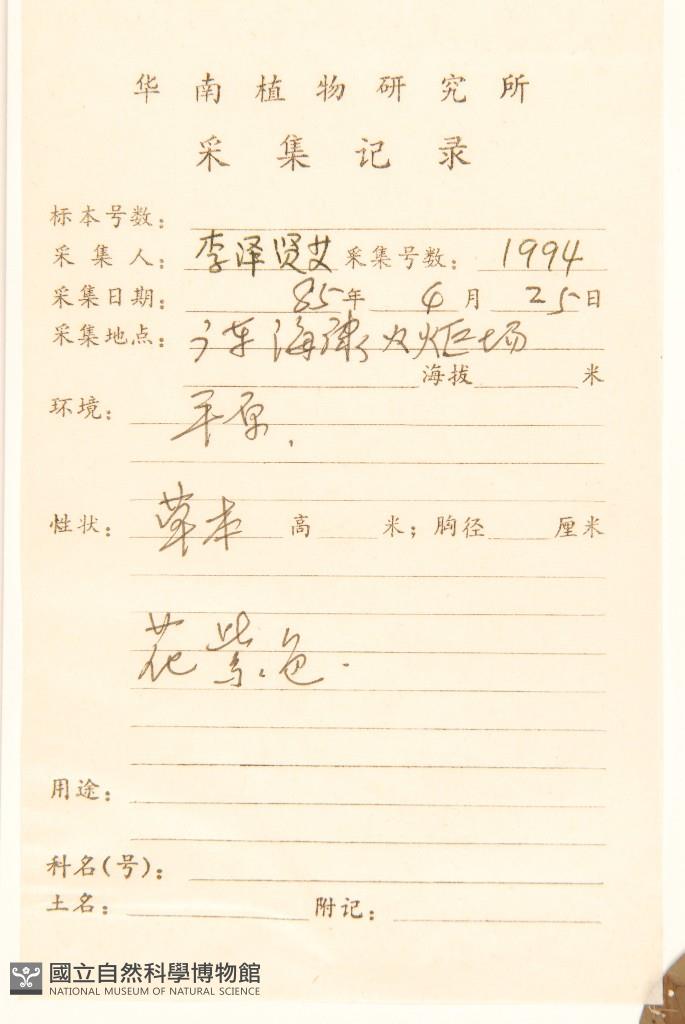 华南植物研究所
采集记录
标本号数:
采集人: 李泽贤 采集号数: 1994
采集日期: 85年 4月 25日
采集地点: 广东海康火炬场
海拔 米
环境: 平原.
性状: 草本 高 米; 胸径 厘米
花紫色.
用途:
科名(号):
土名: 附记:
國立自然科學博物館
NATIONAL MUSEUM OF NATURAL SCIENCE